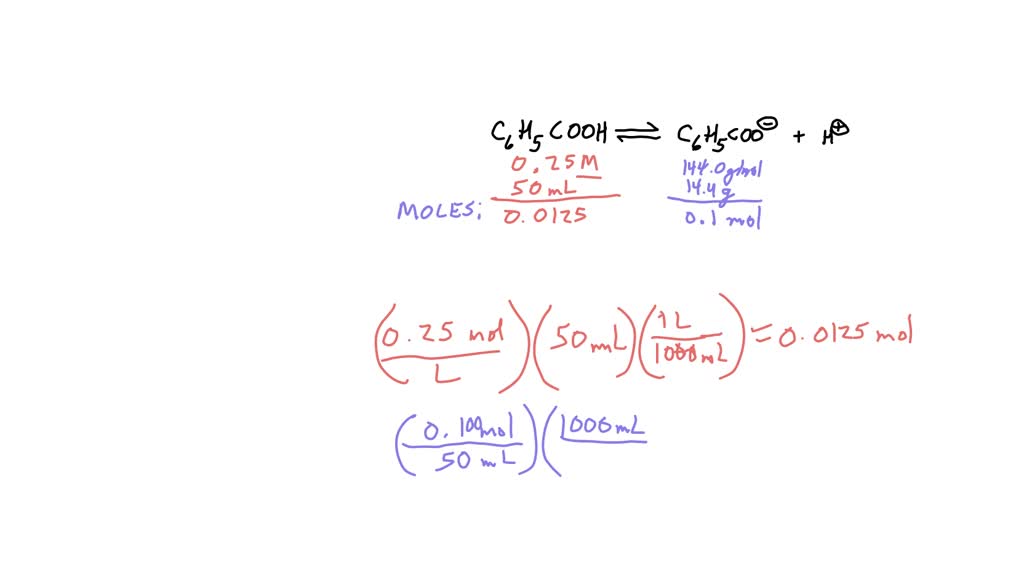 C₆H₅COOH ⇌ C₆H₅COO⊖ + H⊕
0.25 M 144.0 g/mol
50 mL 14.4 g
MOLES: 0.0125 0.1 mol
(0.25 mol / L)(50 mL)(1 L / 1000 mL) = 0.0125 mol
(0.100 mol / 50 mL)(1000 mL